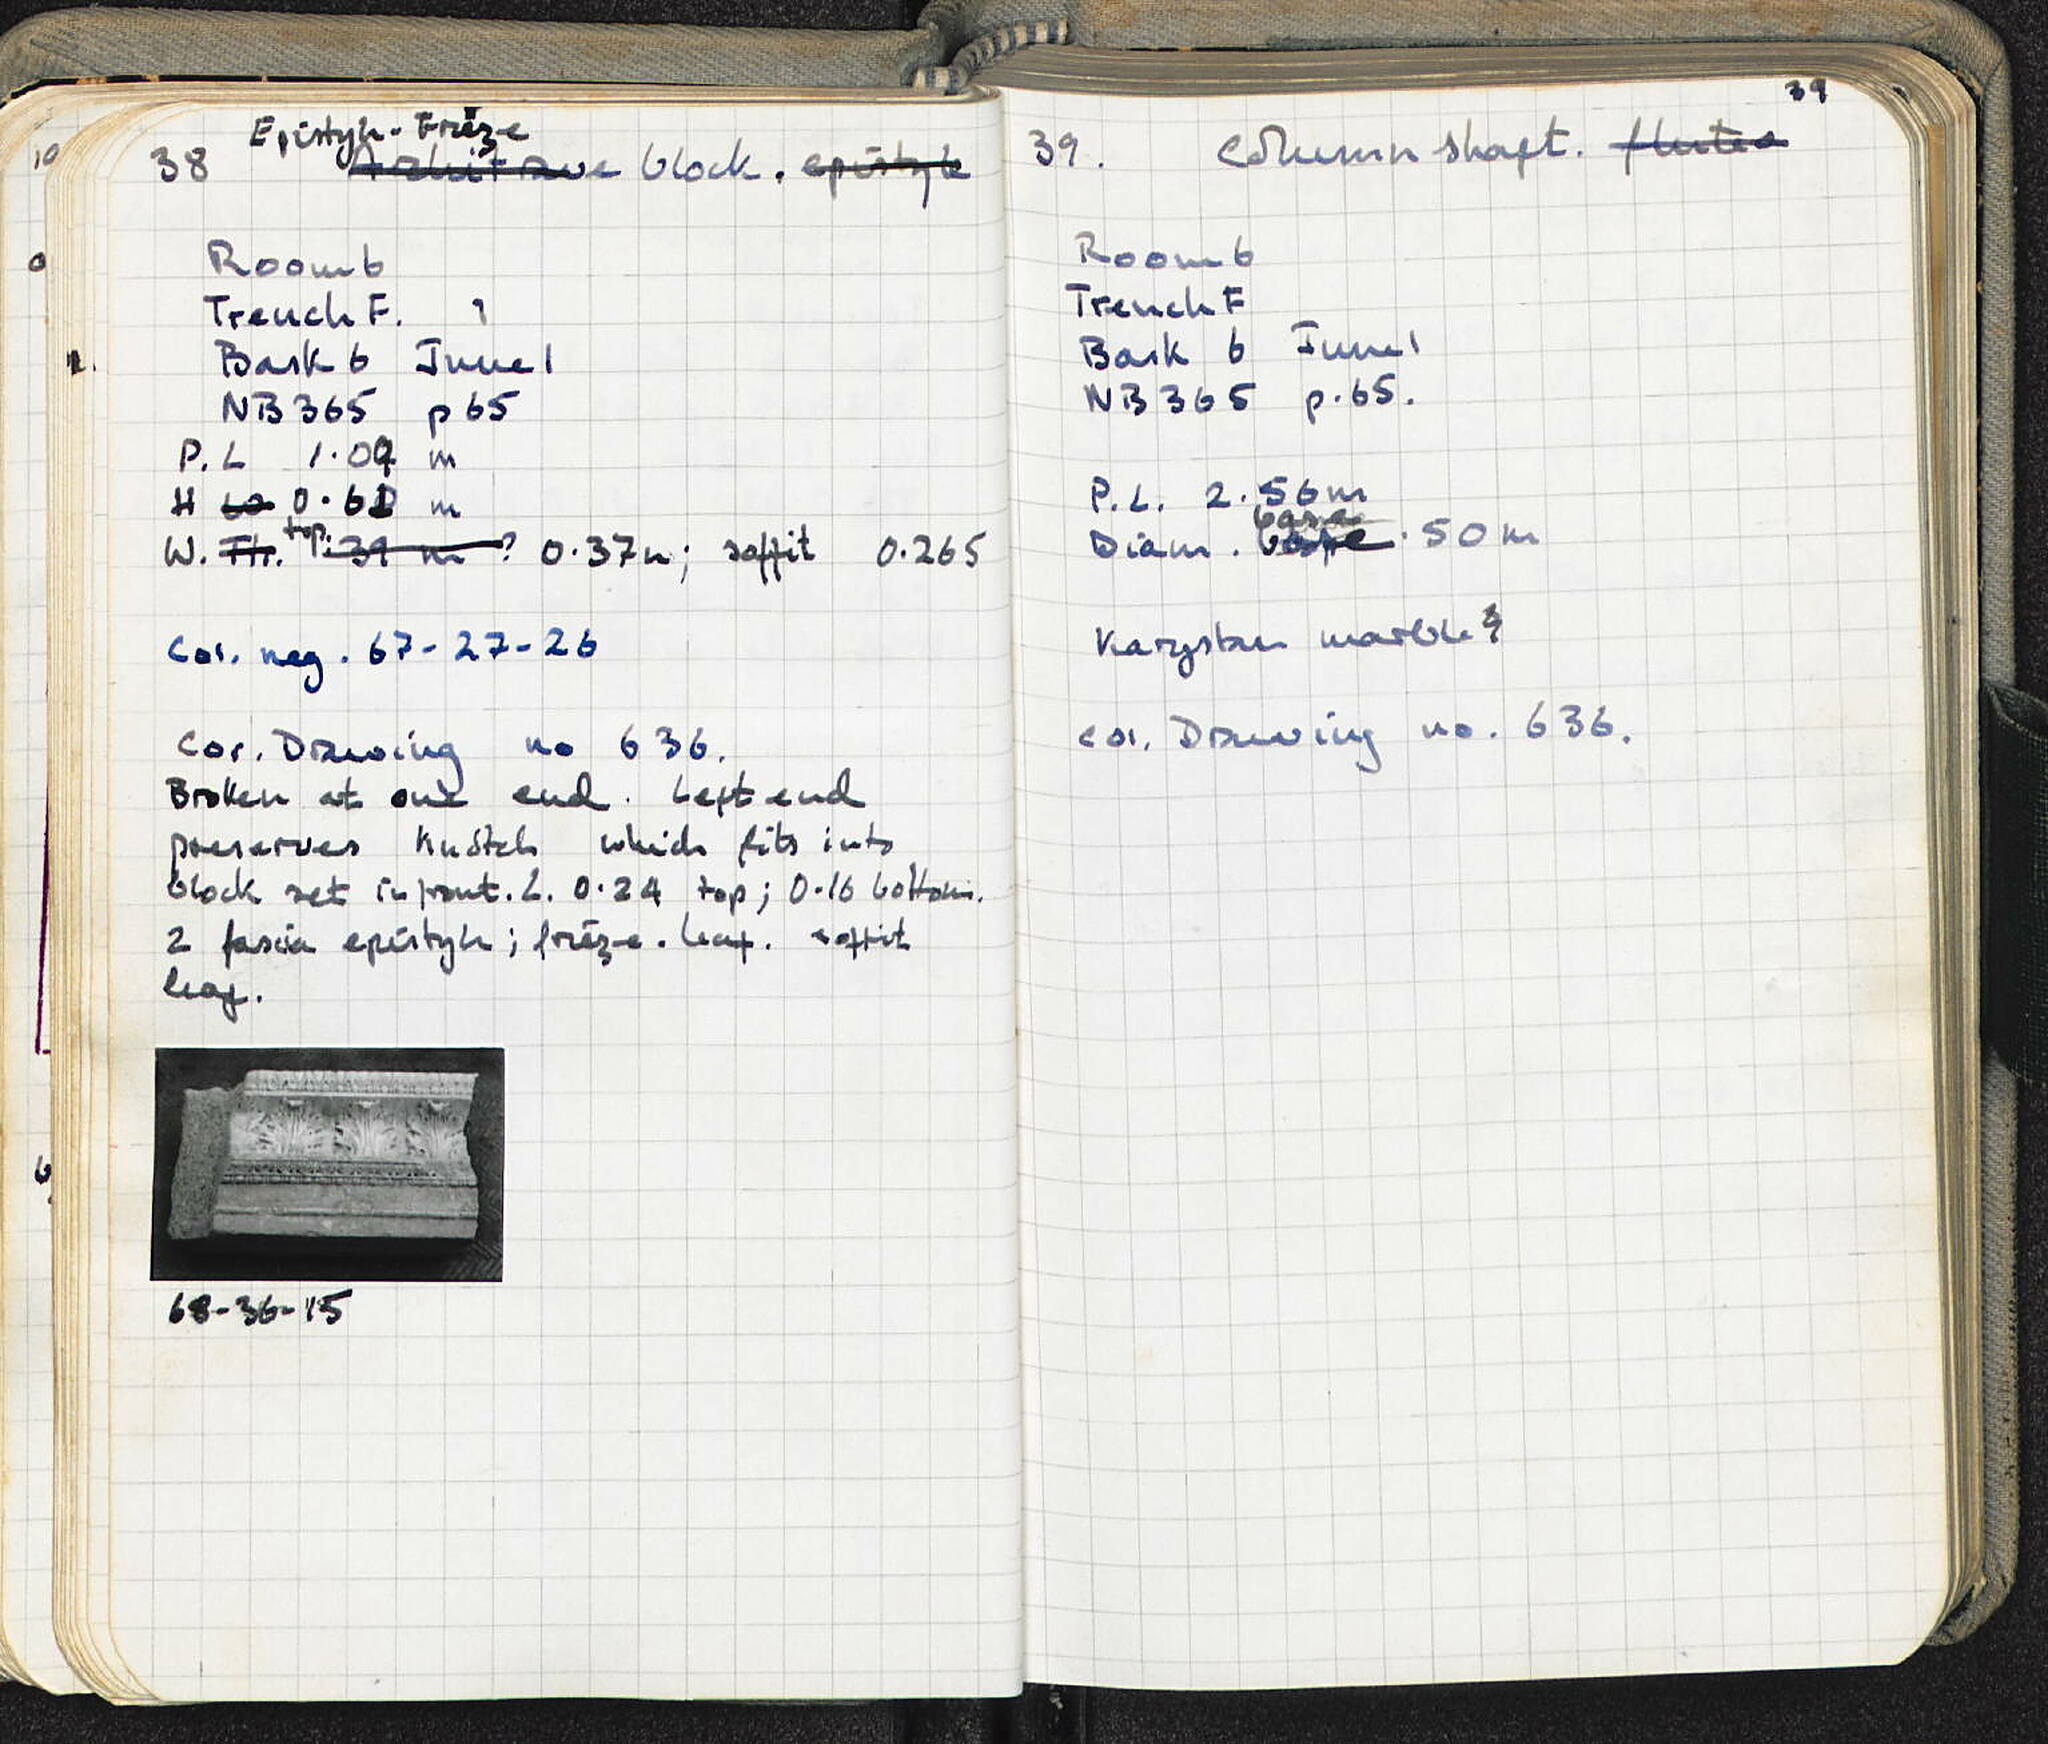 Epistyle-Frieze
38 Architrave block. epistyle
Room 6
Trench F. ?
Bask 6 June 1
NB 365 p 65
P.L 1.09 m
H 0.61 m
top.
W. Th. .39 m ? 0.37m; soffit 0.265
Cor. neg. 67-27-26
Cor. Drawing no 636.
Broken at one end. Left end
preserves which fits into
block set in front. L. 0.24 top; 0.16 bottom.
2 fascia epistyle; frieze. leaf. soffit
leaf.
68-36-15
39
39. Column shaft. fluted
Room 6
Trench F
Bask 6 June 1
NB 365 p. 65.
P.L. 2.56m
base
Diam. .50 m
Karystan marble?
Cor. Drawing no. 636.